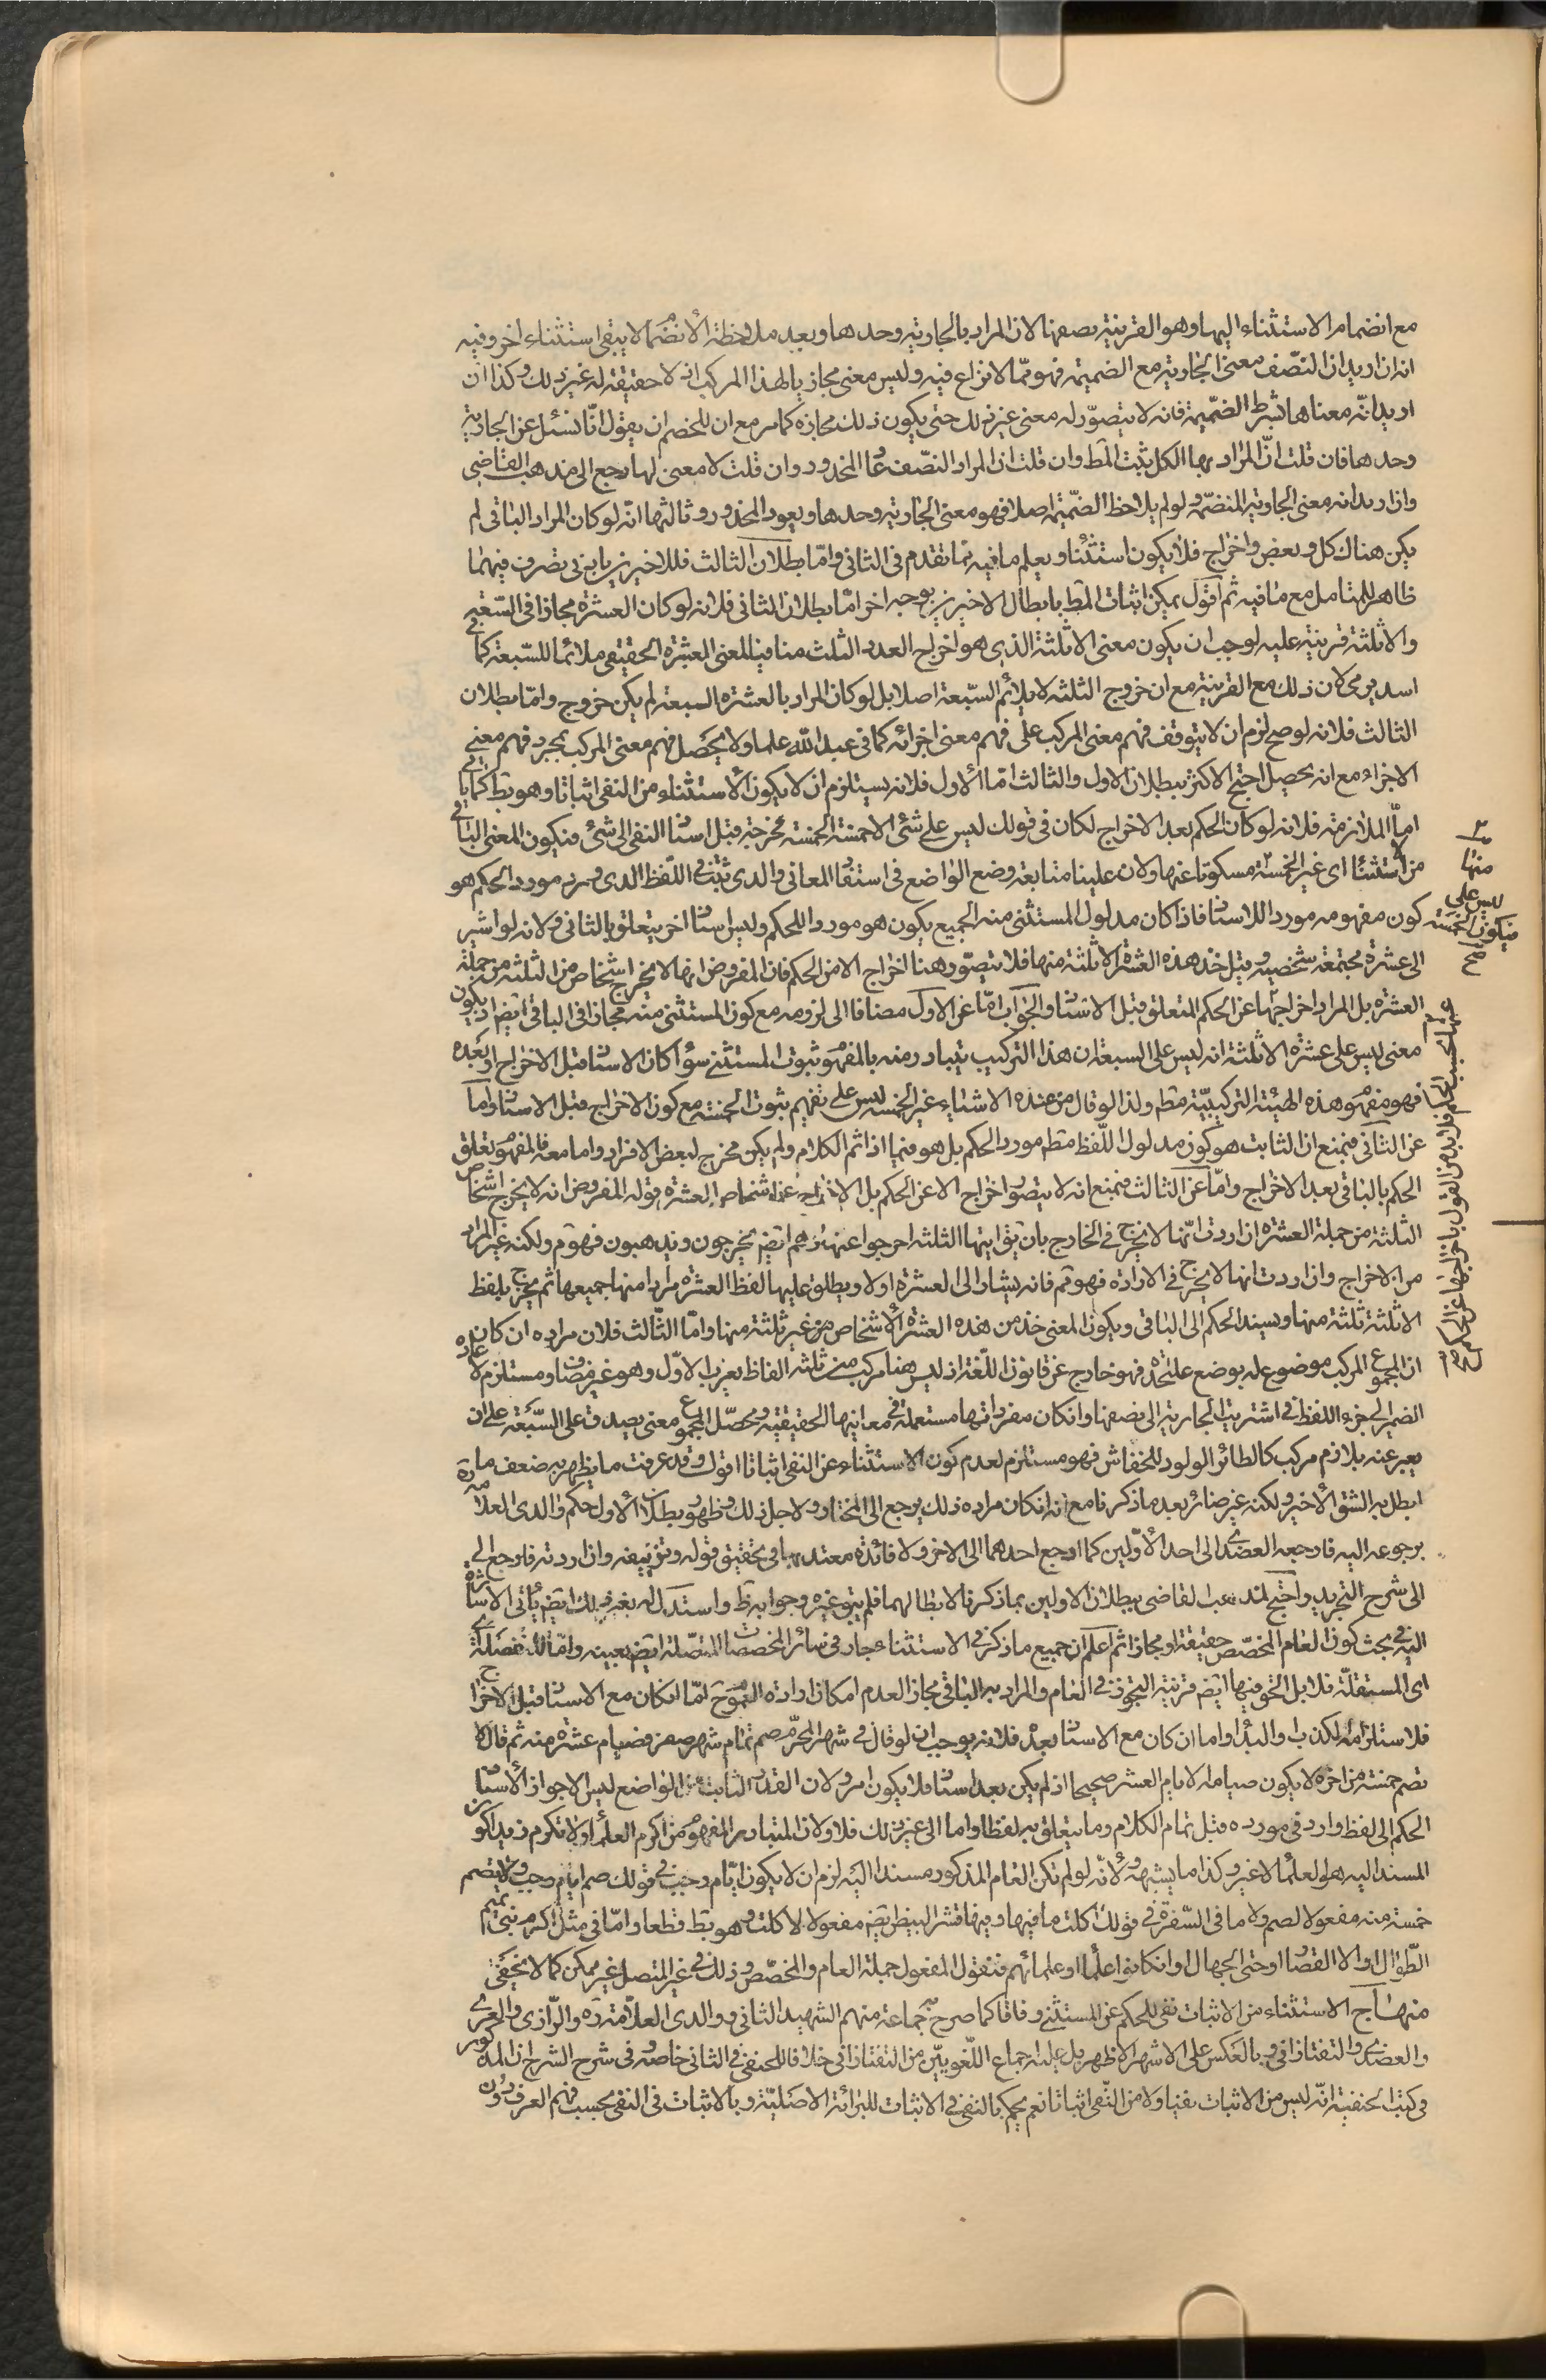 مع انضمام الاستثناء اليها وهو القرينة نصفها لان المراد بالجارية وحدها وبعد ملاحظة الانضمام لا يبقى استثناء اخر وفيه
انه ان اريد ان النصف معنى الجارية مع الضميمة فهو مما لا نزاع فيه وليس معنى مجازيا لهذا المركب اذ لا حقيقة له غير ذلك وكذا ان
اريد انه معناها بشرط الضميمة فانه لا يتصور له معنى غير ذلك حتى يكون ذلك مجازه كما مر مع ان للخصم ان يقول انا نسئل عن الجارية
وحدها فان قلت ان المراد بها الكل يثبت المط وان قلت ان المراد النصف عاد المحذور وان قلت لا معنى لها رجع الى مذهب القاضي
وان اريد انه معنى الجارية المنضمة ولو لم يلاحظ الضميمة اصلا فهو معنى الجارية وحدها ويعود المحذور وثالثها انه لو كان المراد الباقي لم
يكن هناك كل وبعض واخراج فلا يكون استثناء ويعلم ما فيه بما تقدم في الثاني واما بطلان الثالث فللاخيرين بادنى تصرف فيهما
ظاهر للمتامل مع ما فيه ثم اقول يمكن اثبات المط بابطال الاخيرين بوجه اخر اما بطلان الثاني فلانه لو كان العشرة مجازا في السبعة
والا ثلثة قرينة عليه لوجب ان يكون معنى الا ثلثة الذي هو اخراج العدد الثلث منافيا للمعنى العشرة الحقيقي ملائما للسبعة كما في
اسد يرمي لان ذلك مع القرينة مع ان خروج الثلثة لا يلائم السبعة اصلا بل لو كان المراد بالعشرة السبعة لم يكن خروج واما بطلان
الثالث فلانه لو صح لزم ان لا يتوقف فهم معنى المركب على فهم معنى اجزائه كما في عبد الله علما ولا يحصل فهم معنى المركب بمجرد فهم معنى
الاجزاء مع انه يحصل احتج الاكثر ببطلان الاول والثالث اما الاول فلانه يستلزم ان لا يكون الاستثناء من النفي اثباتا وهو بط كما ياتي
اما الملازمة فلانه لو كان الحكم بعد الاخراج لكان في قولك ليس علي شئ الا خمسة الخمسة مخرجة قبل اسناد النفي الى شئ فيكون المعنى الباقي
من استثناء اي غير الخمسة مسكوتا عنها ولان علينا متابعة وضع الواضع في استفادة المعاني والذي ثبت في اللفظ الذي يرد مورد الحكم هو
كون مفهومه موردا للاسناد فاذا كان مدلول المستثنى منه الجميع يكون هو مورد اللحكم وليس اسناد اخر يتعلق بالثاني ولانه لو اشير
الى عشرة مجتمعة شخصية وقيل خذ هذه العشرة الا ثلثة منها فلا يتصور هنا اخراج الا من الحكم فان المفروض انها لا يخرج اشخاص من الثلثة من جملة
العشرة بل المراد اخراجها عن الحكم المتعلق قبل الاسناد والجواب اما عن الاول مضافا الى لزومه مع كون المستثنى منه مجازا في الباقي ايضا اذ يكون
معنى ليس علي عشرة الا ثلثة انه ليس علي السبعة ان هذا التركيب يتبادر منه بالمفهوم ثبوت المستثنى سواء كان الاسناد قبل الاخراج او بعده
فهو مفهوم هذه الهيئة التركيبية مط ولذا لو قال من عنده الاشياء غير الخمسة ليس علي تفهيم ثبوت الخمسة مع كون الاخراج قبل الاسناد واما
عن الثاني فبمنع ان الثابت هو كون مدلول اللفظ مط مورد الحكم بل هو فيما اذا تم الكلام ولم يكن مخرج لبعض الافراد واما معه فالمفهوم تعلق
الحكم بالباقي بعد الاخراج واما عن الثالث فبمنع انه لا يتصور اخراج الا عن الحكم بل الاخراج عن اشخاص العشرة قوله المفروض انه لا يخرج اشخاص
الثلثة من جملة العشرة ان اردت انها لا يخرج في الخارج بان يق ايتها الثلثة اخرجوا عنها وهم ايضا يخرجون ويذهبون فهو م ولكنه غير المراد
من الاخراج وان اردت انها لا يخرج في الارادة فهو مم فانه يشار الى العشرة اولا ويطلق عليها لفظ العشرة مرادا منها جميعها ثم يخرج بلفظ
الا ثلثة ثلثة منها ويسند الحكم الى الباقي ويكون المعنى خذ من هذه العشرة الاشخاص من غير ثلثة منها واما الثالث فلان مراده ان كان
ان المجموع المركب موضوع له بوضع عليحدة فهو خارج عن قانون اللغة اذ ليس هنا مركب من ثلثة الفاظ يعرب الاول وهو غير مضاف ومستلزم لاعادة
الضمير الى جزء اللفظ في اشتريت الجارية الى نصفها وان كان مفرداتها مستعملة في معانيها الحقيقية ومحصل المجموع معنى يصدق على السبعة على ان
يعبر عنه بلازم مركب كالطائر الولود للخفاش فهو مستلزم لعدم كون الاستثناء عن النفي اثباتا اقول وقد عرفت ما يظهر به ضعف ما
ابطل به الشق الاخير ولكنه غير ضائر بعد ما ذكرنا مع انه ان كان مراده ذلك يرجع الى المختار ولاجل ذلك وظهور بطلان الاول حكم والدي العلامة ره
برجوعه اليه فارجعه العضدي الى احد الاولين كما ارجع احدهما الى الاخر ولا فائدة معتد بها في تحقيق قوله وتزييفه وان اردته فارجع الى
الى شرح التجريد واحتج لمذهب القاضي ببطلان الاولين بما ذكرنا لابطالهما فلم يبق غيره وجوابه ظ واستدل له بغير ذلك ايضا ياتي الاشارة
اليه في بحث كون العام المخصص حقيقة او مجازا ثم اعلم ان جميع ما ذكر في الاستثناء جار في سائر المخصصات المتصلة ايضا بعينه واما المنفصلة
اي المستقلة فلا بل الحق فيها ايضا قرينة التجوز في العام والمراد به الباقي مجازا لعدم امكان ارادة العموم ح اما ان كان مع الاسناد قبل الاخراج
فلاستلزامه الكذب او البداء واما ان كان مع الاسناد بعده فلانه يوجب ان لو قال في شهر المحرم صم تمام شهر صفر فصيام عشرة منه ثم قال لا
تصم خمسة من اخره لا يكون صيامه لايام العشر صحيحا اذ لم يكن بعد اسناد فلا يكون امر ولان القدر الثابت من الواضع ليس الا جواز الاسناد
الحكم الى لفظ وارد في مورده قبل تمام الكلام وما يتعلق به لفظا واما الى غير ذلك فلا ولان المتبادر المفهوم من اكرم العلماء ولا تكرم زيدا كون
المسند اليه هو العلماء لا غير وكذا ما يشبهه ولانه لو لم تكن العام المذكور مسندا اليه لزم ان لا يكون ايام رجب في قولك صم ايام رجب ولا تصم
خمسة منه مفعولا لصم ولا ما في السفرة في قولك اكلت ما فيها وفيها قشر البيض ايضا مفعولا لاكلت وهو بط قطعا واما في مثل اكرم بني تميم
الطوال او الا القصار او حتى الجهال او ان كانوا علماء او علمائهم فنقول المفعول جملة العام والمخصص وذلك في غير المتصل غير ممكن كما لا يخفى
منهاج الاستثناء من الاثبات نفي للحكم عن المستثنى وفاقا كما صرح به جماعة منهم الشهيد الثاني ووالدي العلامة ره والرازي والعبري
والعضدي والتفتازاني وبالعكس على الاشهر الاظهر بل عليه اجماع اللغويين من التفتازاني خلافا للحنفي في الثاني خاصة وفي شرح الشرح ان المذكور
في كتب الحنفية انه ليس من الاثبات نفيا ولا من النفي اثباتا نعم يحكم بالنفي في الاثبات للبرائة الاصلية وبالاثبات في النفي بحسب فهم العرف دون
منها
ليس علي
فيكون الخمسة
صح
عنها بحسب الحكم فلا بد من القول باخراجها عن الحكم صح